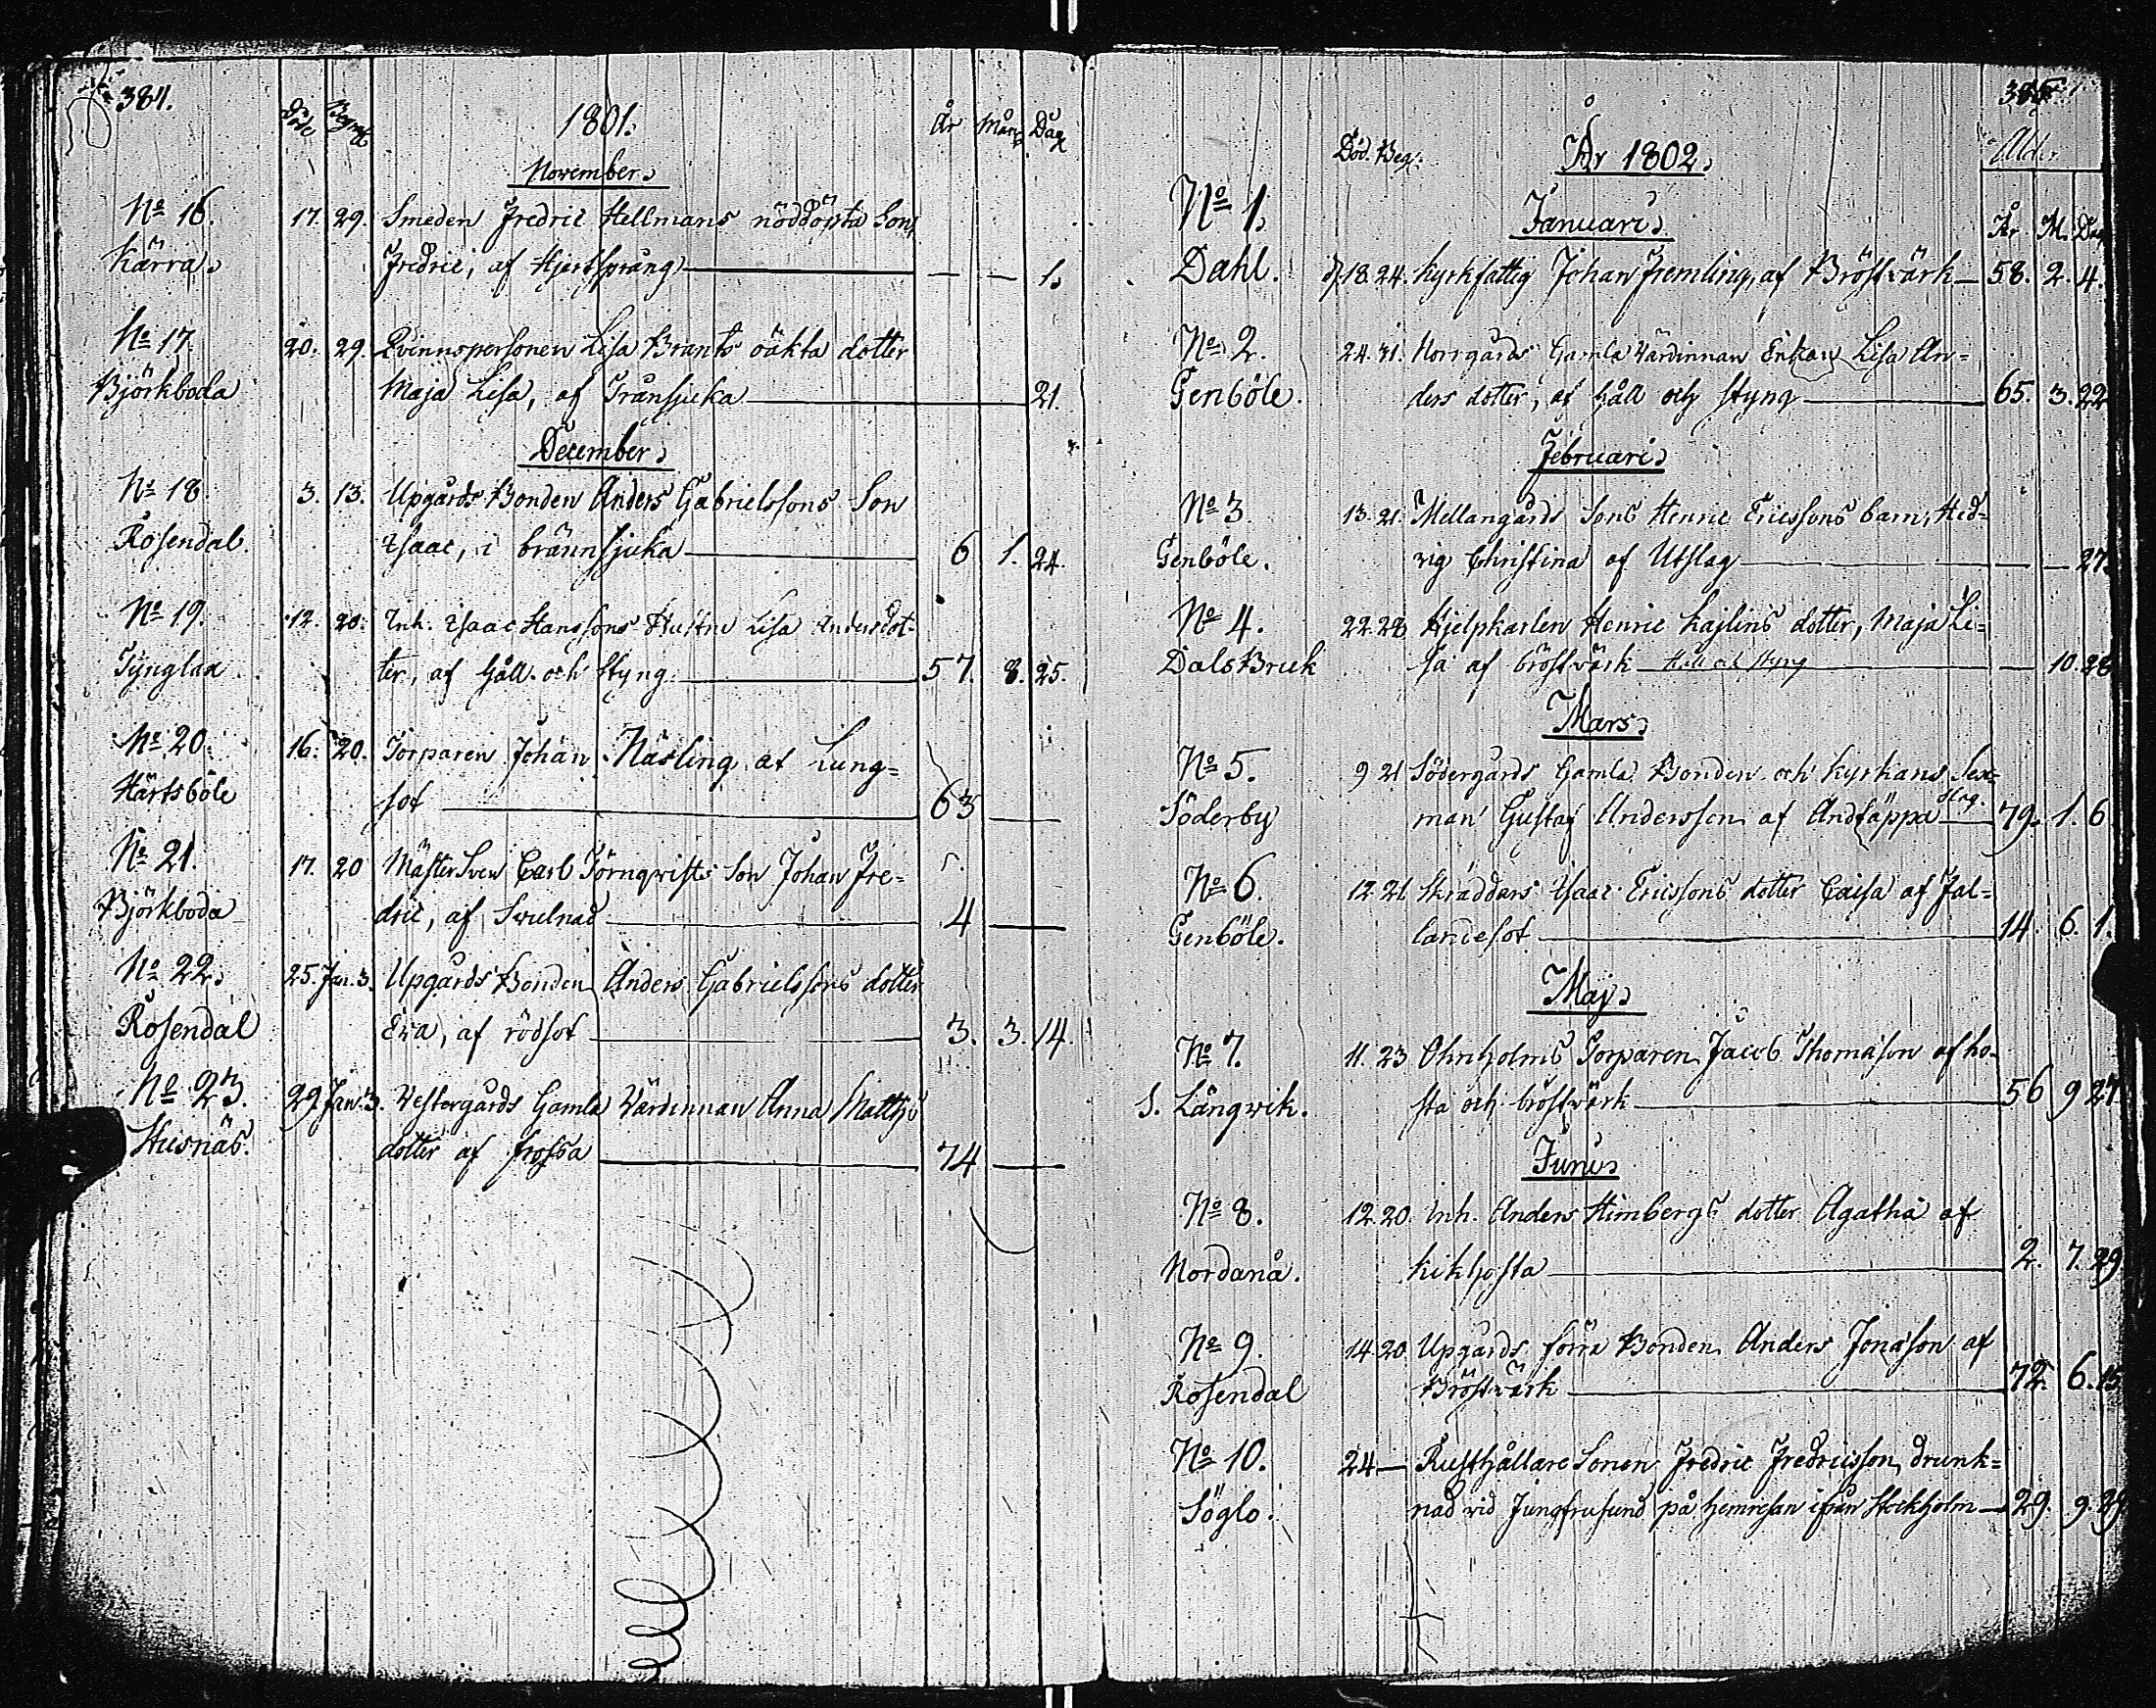 384.
Döde Begrafne 1801. År Mån. Dag.
November.
No 16. 17. 29. Smeden Fredric Hellmans nöddöpta Son,
Kärra. Fredric, af Hjertsprång — — 1.
No 17. 20. 29. Qvinnspersonen Lisa Brants oäkta dotter
Björkboda Maja Lisa, af Trånsjuka 21.
December.
No 18 3. 13. Upgårds Bonden Anders Gabrielssons Son
Rosendal. Isaac, i brännsjuka 6 1. 24.
No 19. 12. 20. Inh. Isaac Hanssons Hustru Lisa Andersdot-
Tynglax ter, af håll och Styng. 57. 8. 25.
No 20. 16. 20. Torparen Johan Näsling af Lung-
Härtsböle sot 63 —
No 21. 17. 20 MästerSven Carl Törnqvists Son Johan Fre-
Björkboda dric, af Svulnad 4 —
No 22. 25. Jan. 3. Upgårds Bonden Anders Gabrielssons dotter
Rosendal Eva, af rödsot 3. 3. 14.
No 23. 29. Jan. 3. Vestergårds Gamla Värdinnan Anna Matths
Husnäs. dotter af frossa 74 —
385
Död. Beg. År 1802. Ålder
No 1. Januari. År M. Dag
Dahl. d. 18. 24. Kyrkfattig Johan Fremling, af Bröstvärk — 58. 2. 4.
No 2. 24. 31. Norrgårds Gamla Värdinnan Enkan Lisa An-
Genböle. ders dotter, af håll och styng 65. 3. 22
Februari.
No 3. 13. 21. Mellangårds Sons Henric Ericssons barn, Hed-
Genböle. vig Christina af Utslag — — 27.
No 4. 22. 28 Hjelpkarlen Henric Kajlins dotter, Maja Li-
DalsBruk sa af bröstvärk Håll och Styng — 10. 28
Mars.
No 5. 9 21 Södergårds Gamla Bonden och Kyrkans Sex-
Söderby man Gustaf Andersson af Andtäppa Slag. 79. 1. 6
No 6. 12 21. Skräddars Isaac Ericssons dotter Caisa af Fal-
Genböle. landesot 14. 6. 1.
Maj.
No 7. 11. 23 Ohnholms Torparen Jacob Thomasson af ho-
S. Långvik. sta och bröstvärk 56 9 27.
Juni.
No 8. 12. 20. Inh. Anders Himbergs dotter Agatha af
Nordanå. kikhosta 2. 7. 29
No 9. 14 20 Upgårds förra Bonden Anders Jonasson af
Rosendal Bröstvärk 72. 6. 15
No 10. 24 — Rusthållare Sonen Fredric Fredricsson, drunk-
Söglo. nad vid Jungfrusund på hemresan ifrån Stockholm — 29. 9. 29